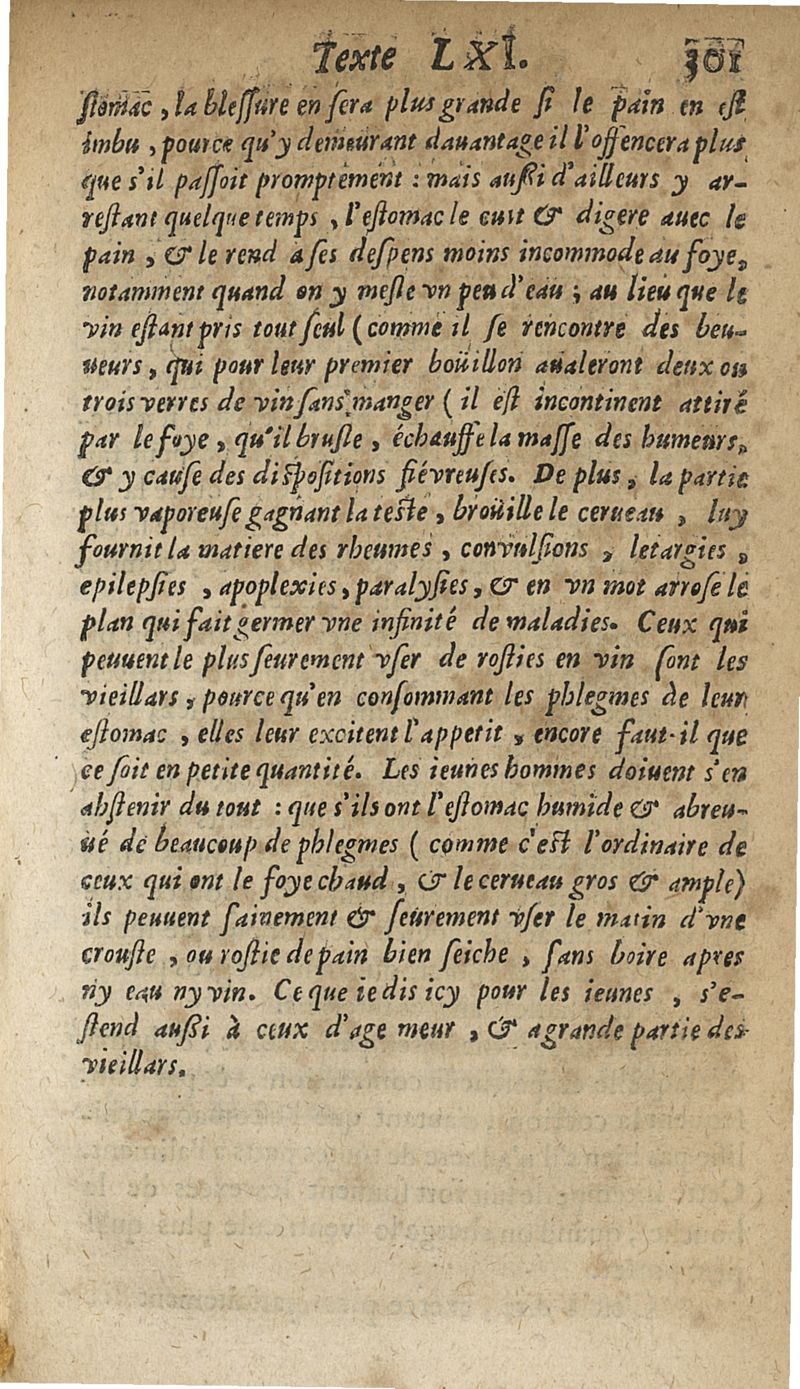 Texte LXI. 301
ſtomac, la bleſſure en ſera plus grande ſi le pain en eſt
imbu, pource qu'y demeurant dauantage il l'offencera plus
que s'il paſſoit promptement : mais auſſi d'ailleurs y ar-
reſtant quelque temps, l'eſtomac le cuit & digere auec le
pain, & le rend à ſes deſpens moins incommode au foye,
notamment quand on y meſle vn peu d'eau ; au lieu que le
vin eſtant pris tout ſeul (comme il ſe rencontre des beu-
ueurs, qui pour leur premier boüillon aualeront deux ou
trois verres de vin ſans manger ( il eſt incontinent attiré
par le foye, qu'il bruſle, échauffe la maſſe des humeurs,
& y cauſe des diſpoſitions fiévreuſes. De plus, la partie
plus vaporeuſe gagnant la teſte, broüille le cerueau, luy
fournit la matiere des rheumes, convulſions, letargies,
epilepſies, apoplexies, paralyſies, & en vn mot arroſe le
plan qui fait germer vne infinité de maladies. Ceux qui
peuuent le plus ſeurement vſer de roſties en vin ſont les
vieillars, pource qu'en conſommant les phlegmes de leur
eſtomac, elles leur excitent l'appetit, encore faut-il que
ce ſoit en petite quantité. Les ieunes hommes doiuent s'en
abſtenir du tout : que s'ils ont l'eſtomac humide & abreu-
ué de beaucoup de phlegmes ( comme c'eſt l'ordinaire de
ceux qui ont le foye chaud, & le cerueau gros & ample)
ils peuuent ſainement & ſeurement vſer le matin d'vne
crouſte, ou roſtie de pain bien ſeiche, ſans boire apres
ny eau ny vin. Ce que ie dis icy pour les ieunes, s'e-
ſtend auſſi à ceux d'age meur, & a grande partie des
vieillars.